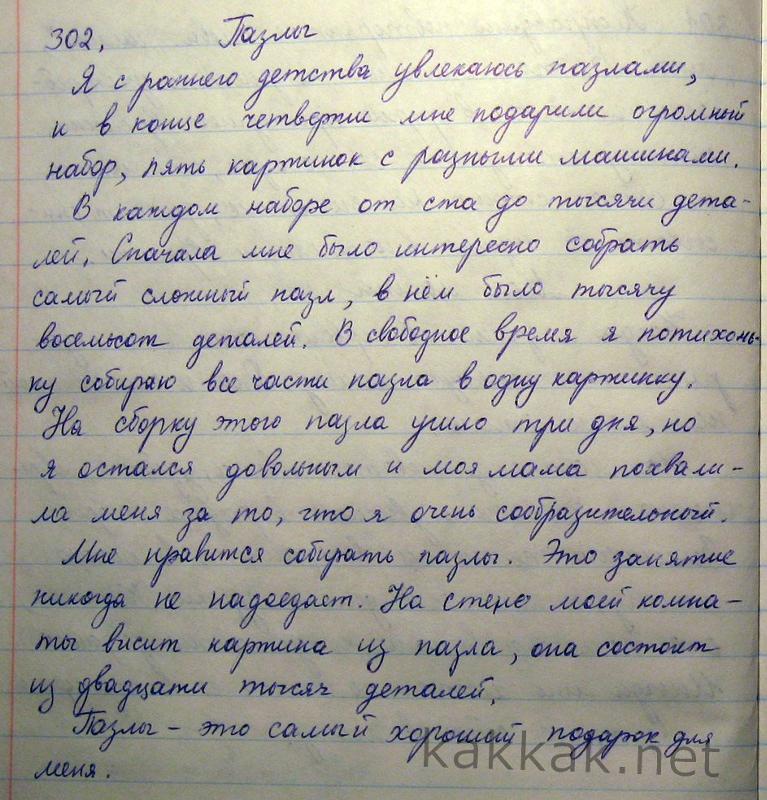 302. Пазлы
Я с раннего детства увлекаюсь пазлами,
и в конце четверти мне подарили огромный
набор, пять картинок с разными машинами.
В каждом наборе от ста до тысячи дета-
лей. Сначала мне было интересно собрать
самый сложный пазл, в нём было тысячу
восемьсот деталей. В свободное время я потихонь-
ку собираю все части пазла в одну картинку.
На сборку этого пазла ушло три дня, но
я остался довольным и моя мама похвали-
ла меня за то, что я очень сообразительный.
Мне нравится собирать пазлы. Это занятие
никогда не надоедает. На стене моей комна-
ты висит картина из пазла, она состоит
из двадцати тысяч деталей.
Пазлы - это самый хороший подарок для
меня.
kakkak.net